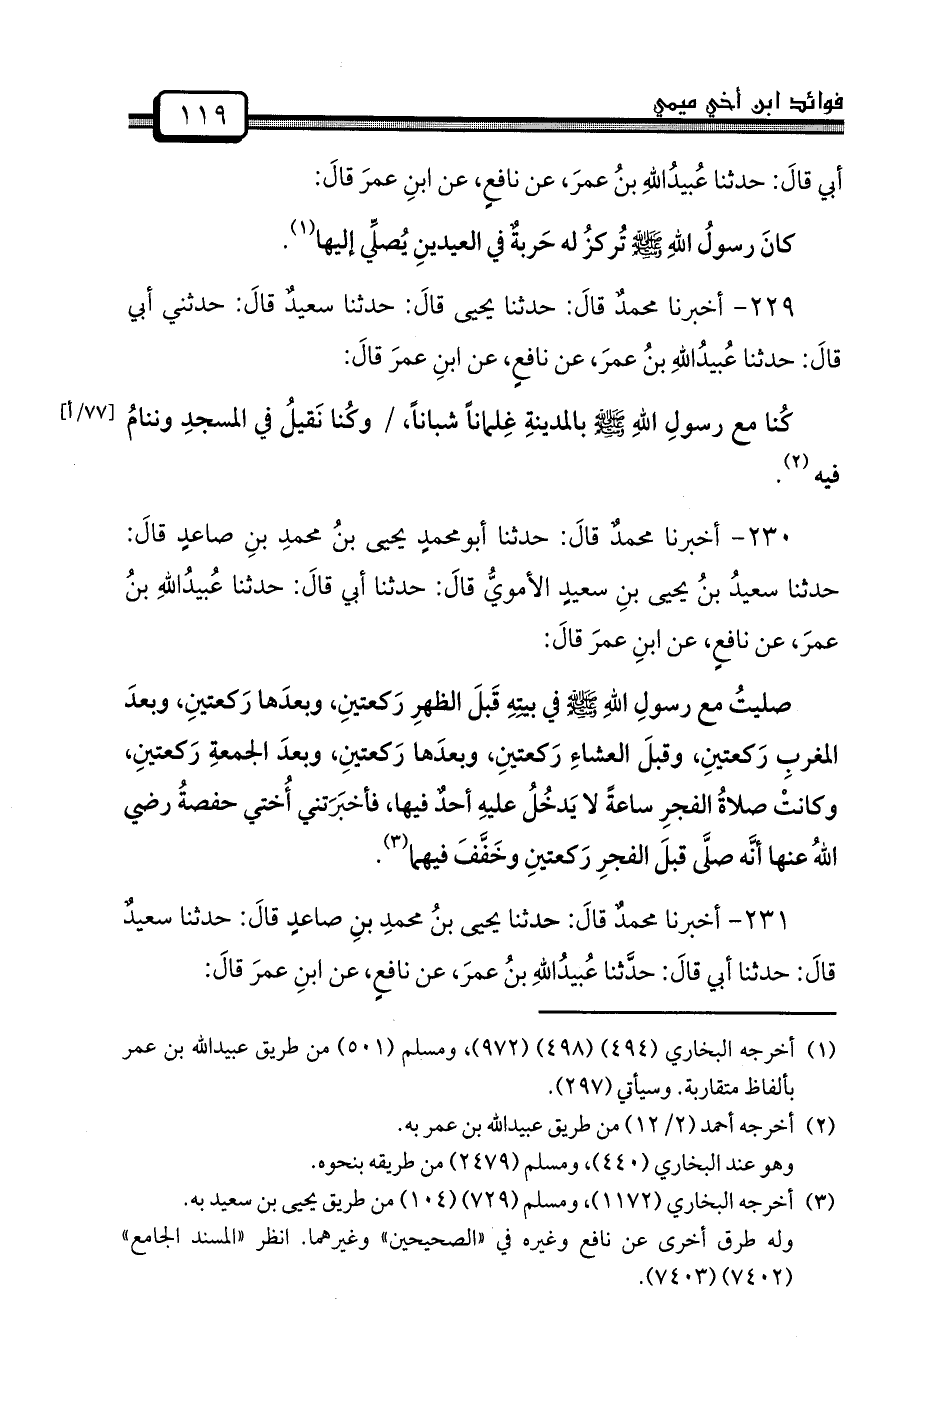 فوائد ابن أخي ميمي
١١٩
أبي قالَ: حدثنا عُبيدُاللهِ بنُ عمرَ، عن نافعٍ، عن ابنِ عمرَ قالَ:
كانَ رسولُ اللهِ ﷺ تُركزُ له حَربةٌ في العيدينِ يُصلِّي إليها(١).
٢٢٩- أخبرنا محمدٌ قالَ: حدثنا يحيى قالَ: حدثنا سعيدٌ قالَ: حدثني أبي
قالَ: حدثنا عُبيدُاللهِ بنُ عمرَ، عن نافعٍ، عن ابنِ عمرَ قالَ:
كُنا مع رسولِ اللهِ ﷺ بالمدينةِ غِلماناً شباناً، / وكُنا نَقيلُ في المسجدِ وننامُ [٧٧/أ]
فيه (٢).
٢٣٠- أخبرنا محمدٌ قالَ: حدثنا أبومحمدٍ يحيى بنُ محمدِ بنِ صاعدٍ قالَ:
حدثنا سعيدُ بنُ يحيى بنِ سعيدٍ الأمويُّ قالَ: حدثنا أبي قالَ: حدثنا عُبيدُاللهِ بنُ
عمرَ، عن نافعٍ، عن ابنِ عمرَ قالَ:
صليتُ مع رسولِ اللهِ ﷺ في بيتِهِ قَبلَ الظهرِ رَكعتينِ، وبعدَها رَكعتينِ، وبعدَ
المغربِ رَكعتينِ، وقبلَ العشاءِ رَكعتينِ، وبعدَها رَكعتينِ، وبعدَ الجمعةِ رَكعتينِ،
وكانتْ صلاةُ الفجرِ ساعةً لا يَدخُلُ عليهِ أحدٌ فيها، فأخبَرَتني أُختي حفصةُ رضي
اللهُ عنها أنَّه صلَّى قبلَ الفجرِ رَكعتينِ وخَفَّفَ فيهما(٣).
٢٣١- أخبرنا محمدٌ قالَ: حدثنا يحيى بنُ محمدِ بنِ صاعدٍ قالَ: حدثنا سعيدٌ
قالَ: حدثنا أبي قالَ: حدَّثنا عُبيدُاللهِ بنُ عمرَ، عن نافعٍ، عن ابنِ عمرَ قالَ:
(١) أخرجه البخاري (٤٩٤) (٤٩٨) (٩٧٢)، ومسلم (٥٠١) من طريق عبيدالله بن عمر
بألفاظ متقاربة. وسيأتي (٢٩٧).
(٢) أخرجه أحمد (٢/ ١٢) من طريق عبيدالله بن عمر به.
وهو عند البخاري (٤٤٠)، ومسلم (٢٤٧٩) من طريقه بنحوه.
(٣) أخرجه البخاري (١١٧٢)، ومسلم (٧٢٩) (١٠٤) من طريق يحيى بن سعيد به.
وله طرق أخرى عن نافع وغيره في «الصحيحين» وغيرهما. انظر «المسند الجامع»
(٧٤٠٢) (٧٤٠٣).